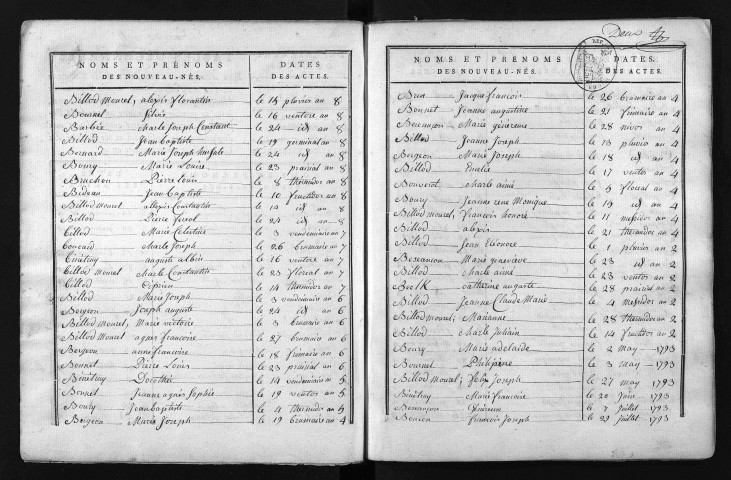 NOMS ET PRÉNOMS DES NOUVEAU-NÉS.
DATES DES ACTES.
Billod mourel, alexis florantin le 18 pluvios an 8
Bournel Silvie le 16 ventose an 8
Barbier Charle Joseph Constant le 24 id an 8
Billod Jean baptiste le 19 germinal an 8
Bernard Marie Joseph le 24 id an 8
Boury Marie Louise le 23 prairial an 8
Bruchon Pierre Louis le 8 thermidor an 8
Bideau Jean baptiste le 10 fructidor an 8
Billod mourel alexis Constantin le 14 id an 8
Billod Pierre le 24 id an 8
Billod Marie Celestine le 3 vendemiaire an 7
Charle Joseph le 26 brumaire an 7
auguste albin le 16 ventose an 7
Billod Mourel Charle Constantin le 23 floreal an 7
Billod Ciprien le 14 thermidor an 7
Billod Marie Joseph le 3 vendemiaire an 6
Bergeon Joseph auguste le 24 id an 6
Billod Mourel, Marie victoire le 3 brumaire an 6
Billod Mourel agnes francoise le 27 brumaire an 6
Bergeon anne francoise le 18 frimaire an 6
Bonnet Pierre Louis le 23 prairial an 6
Bénétruy Dorothée le 14 vendemiaire an 5
Bonnet Jeanne agnès Sophie le 19 ventos an 5
Boury Jean baptiste le 4 thermidor an 5
Bergeon Marie Joseph le 19 brumaire an 4
Deux
NOMS ET PRÉNOMS DES NOUVEAU-NÉS.
DATES DES ACTES.
Brun Jacque francois le 26 brumaire an 4
Bonnet Jeanne augustine le 21 frimaire an 4
Besancon Marie génereuse le 28 nivos an 4
Billod Jeanne Joseph le 13 pluvios an 4
Bergeon Marie Joseph le 18 id an 4
Billod Emelie le 17 ventos an 4
Bonvorot charle aimé le 9 floreal an 4
Boury Jeanne Monique le 19 id an 4
Billod mourel, françois honoré le 11 messidor an 4
Billod alexis le 21 thermidor an 4
Billod Jean Eléonore le 1 pluvios an 2
Besancon Marie genevieve le 23 id an 2
Billod Charle aimé le 23 ventos an 2
catherine auguste le 28 prairial an 2
Billod Jeanne Claude Marie le 4 messidor an 2
Billod mourel, Marianne le 28 thermidor an 2
Billod Charle Juhain le 14 fructidor an 2
Boury Marie adelaide le 2 may 1793
Bournel Philipine le 3 may 1793
Billod Mourel, felix Joseph le 27 may 1793
Bénétruy Marie francoise le 20 Juin 1793
Besançon le 7 Juillet 1793
francois Joseph le 29 Juillet 1793